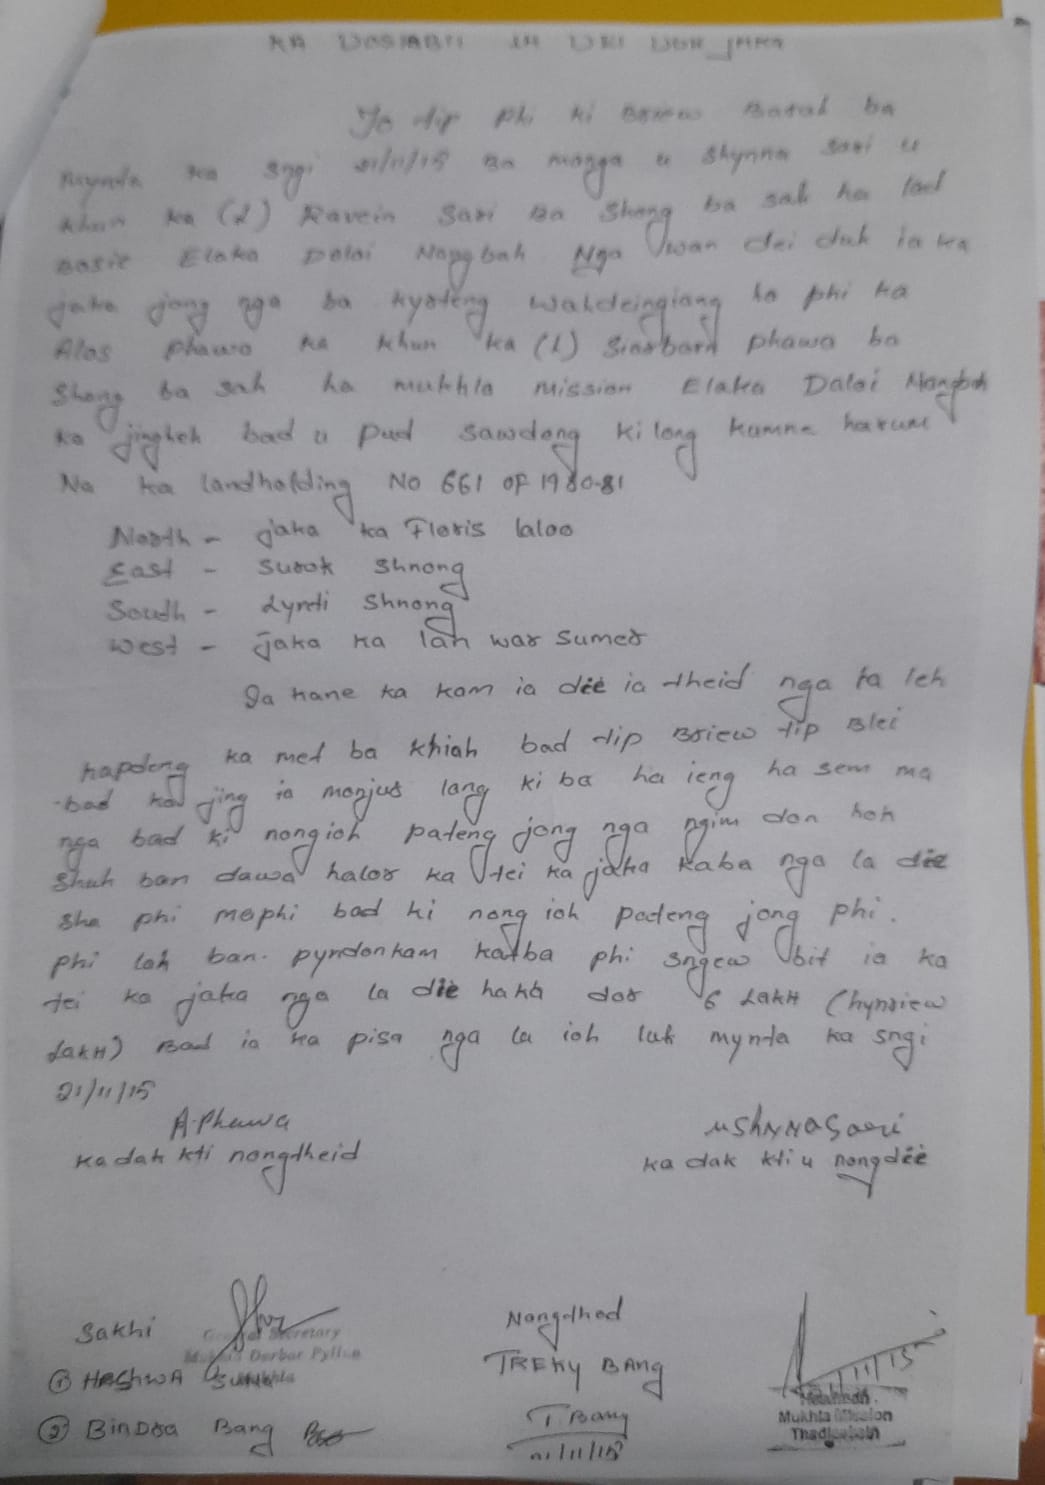 KA DOSTABIT IA DEI DUH JAKA
Ia tip phi ki Briew Barah ba
mynda ka sngi 21/11/15 Ba manga u Shynna Sari u
khun ka (L) Ravein Sari Ba Shong ba sah ha lad
Basic Elaka Doloi Nongbah Nga wan dei duh ia ka
jaka jong nga ba kyrteng Wahdeingiang ha phi ka
Alas Phawa ka khun ka (L) Phawa ba
Shong ba sah ha mukhla mission Elaka Daloi Nangbah
ka jingheh bad u pud sawdong ki long kumne harum
Na ka landholding No 661 OF 1980-81
North - jaka ka Floris laloo
East - Surok Shnong
South - Lynti Shnong
West - jaka ka lah war Sumer
Ia kane ka kam ia dië ia theid nga la leh
hapdeng ka met ba khiah bad tip Briew tip Blei
bad ka jing ia monjur lang ki ba ha ieng ha sem ma
nga bad ki nongioh pateng jong nga ngim don hoh
shuh ban dawa halor ka tei ka jaka kaba nga la dië
sha phi maphi bad ki nong ioh pateng jong phi.
phi lah ban. pyndonkam katba phi sngew bit ia ka
tei ka jaka nga la dië haka dor 6 LAKH (hynriew
LAKH) Bad ia ka pisa nga la ioh lut mynta ka sngi
21/11/15
A. Phawa
Ka dak kti nongtheid
u Shynna Sari
ka dak kti u nongdië
Sakhi
General Secretary
Mukhla Dorbar Pyllun
Mukhla
① HASHWA SUNG
② BINDRA Bang
Nongthod
TREKY BANG
T Bang
21/11/15
21/11/15
Headman
Mukhla Mission
Thadlaskein